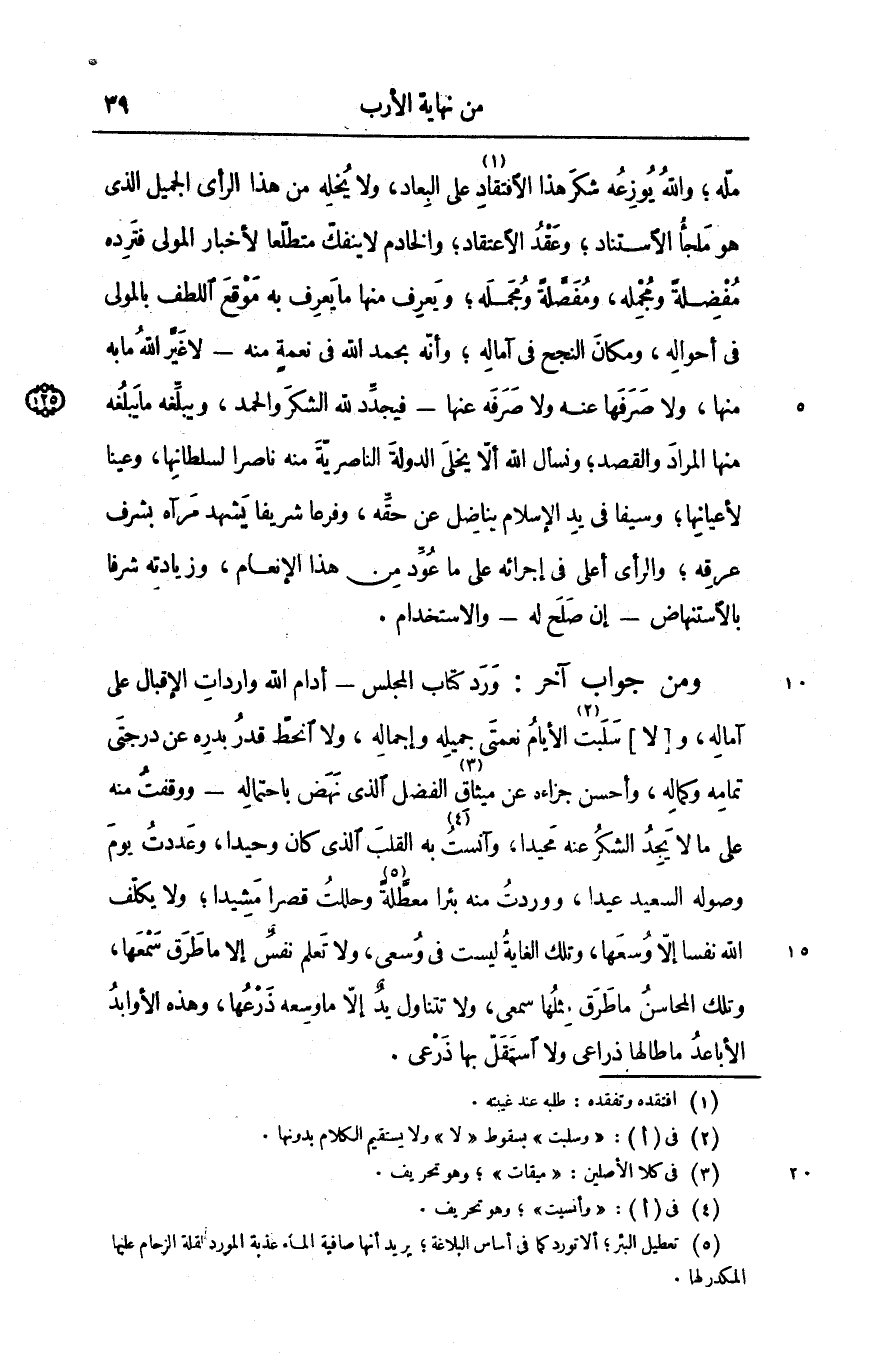 من نهاية الأرب ٣٩
ملّه ؛ واللهُ يُوزِعُه شكرَ هذا الاَفتقادِ (١) على البِعاد، ولا يُخلِه من هذا الرأى الجميل الذى
هو مَلجأُ الاَستناد ؛ وعَقْدُ الاَعتقاد ؛ والخادم لاينفكّ متطلّعا لأخبار المولى فتَرِده
مُفْضِلةً ومُجْمِله، ومُفَصَّلةً ومُجَمَله ؛ ويَعرِف منها مايَعرِف به مَوْقعَ اَللطف بالمولى
فى أحوالِه ، ومكانَ النجح فى آمالِه ؛ وأنّه بحمد الله فى نعمةٍ منه – لاغيَّر اللهُ مابه
منها ، ولا صَرَفَها عنه ولا صَرَفَه عنها – فيجدِّد لله الشكرَ والحمد ، ويبلِّغه مايَبلُغه ٥
١٢٥
منها المرادَ والقصد ؛ ونسأل الله ألّا يخلىَ الدولةَ الناصريّةَ منه ناصرا لسلطانها، وعينا
لأعيانها؛ وسيفا فى يدِ الإسلام يناضل عن حقِّه ، وفرعا شريفا يَشهد مَرآه بشرف
عِرقِه ؛ والرأى أعلى فى إجرائه على ما عُوِّد من هذا الإنعام ، وزيادتِه شرفا
بالاَستنهاض – إن صَلَح له – والاستخدام .
ومن جواب آخر : وَرَد كتاب المجلس – أدام الله وارداتِ الإقبال على ١٠
آمالِه ، و [ لا ] سَلَبت (٢) الأيامُ نعمتَى جميلِه وإجمالِه ، ولا اَنحطّ قدرُ بدرِه عن درجتَى
تمامِه وكمالِه ، وأحسن جزاءه عن ميثاقِ (٣) الفضل اَلذى نَهَض باحتمالِه – ووقفتُ منه
على ما لا يَجِدُ الشكرُ عنه مَحيدا ، وآنستُ (٤) به القلبَ اَلذى كان وحيدا ، وعَددتُ يومَ
وصوله السعيد عيدا ، ووردتُ منه بئرا معطّلةً (٥) وحللتُ قصرا مَشِيدا ؛ ولا يكلّف
الله نفسا إلّا وُسعَها، وتلك الغايةُ ليست فى وُسعى، ولا تَعلم نفسٌ إلا ماطَرَق سَمْعَها، ١٥
وتلك المحاسنُ ماطَرَق مِثلُها سمعى، ولا تتناول يدٌ إلّا ماوسعه ذَرْعُها، وهذه الأوابدُ
الأباعدُ ماطالها ذراعى ولا اَستَقَلّ بها ذَرْعى .
(١) افتقده وتفقده : طلبه عند غيبته .
(٢) فى (أ) : « وسلبت » بسقوط « لا » ولا يستقيم الكلام بدونها .
(٣) فى كلا الأصلين : « ميقات » ؛ وهو تحريف . ٢٠
(٤) فى (أ) : « وأنسيت» ؛ وهو تحريف .
(٥) تعطيل البئر ؛ ألا تورد كما فى أساس البلاغة ؛ يريد أنها صافية الماء عذبة المورد لقلة الزحام عليها
المكدر لها .